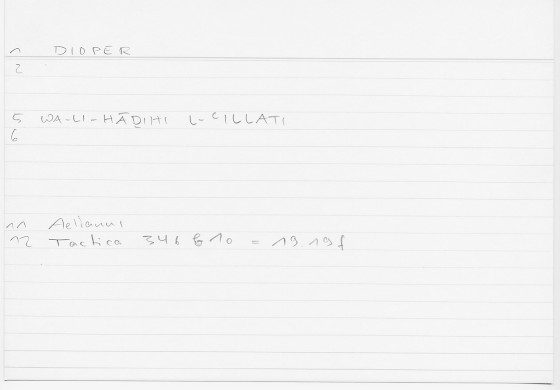 1 DIOPER
2
5 WA-LI-HĀḎIHI L-ʿILLATI
6
11 Aelianus
12 Tactica 346 B10 = 19 19f